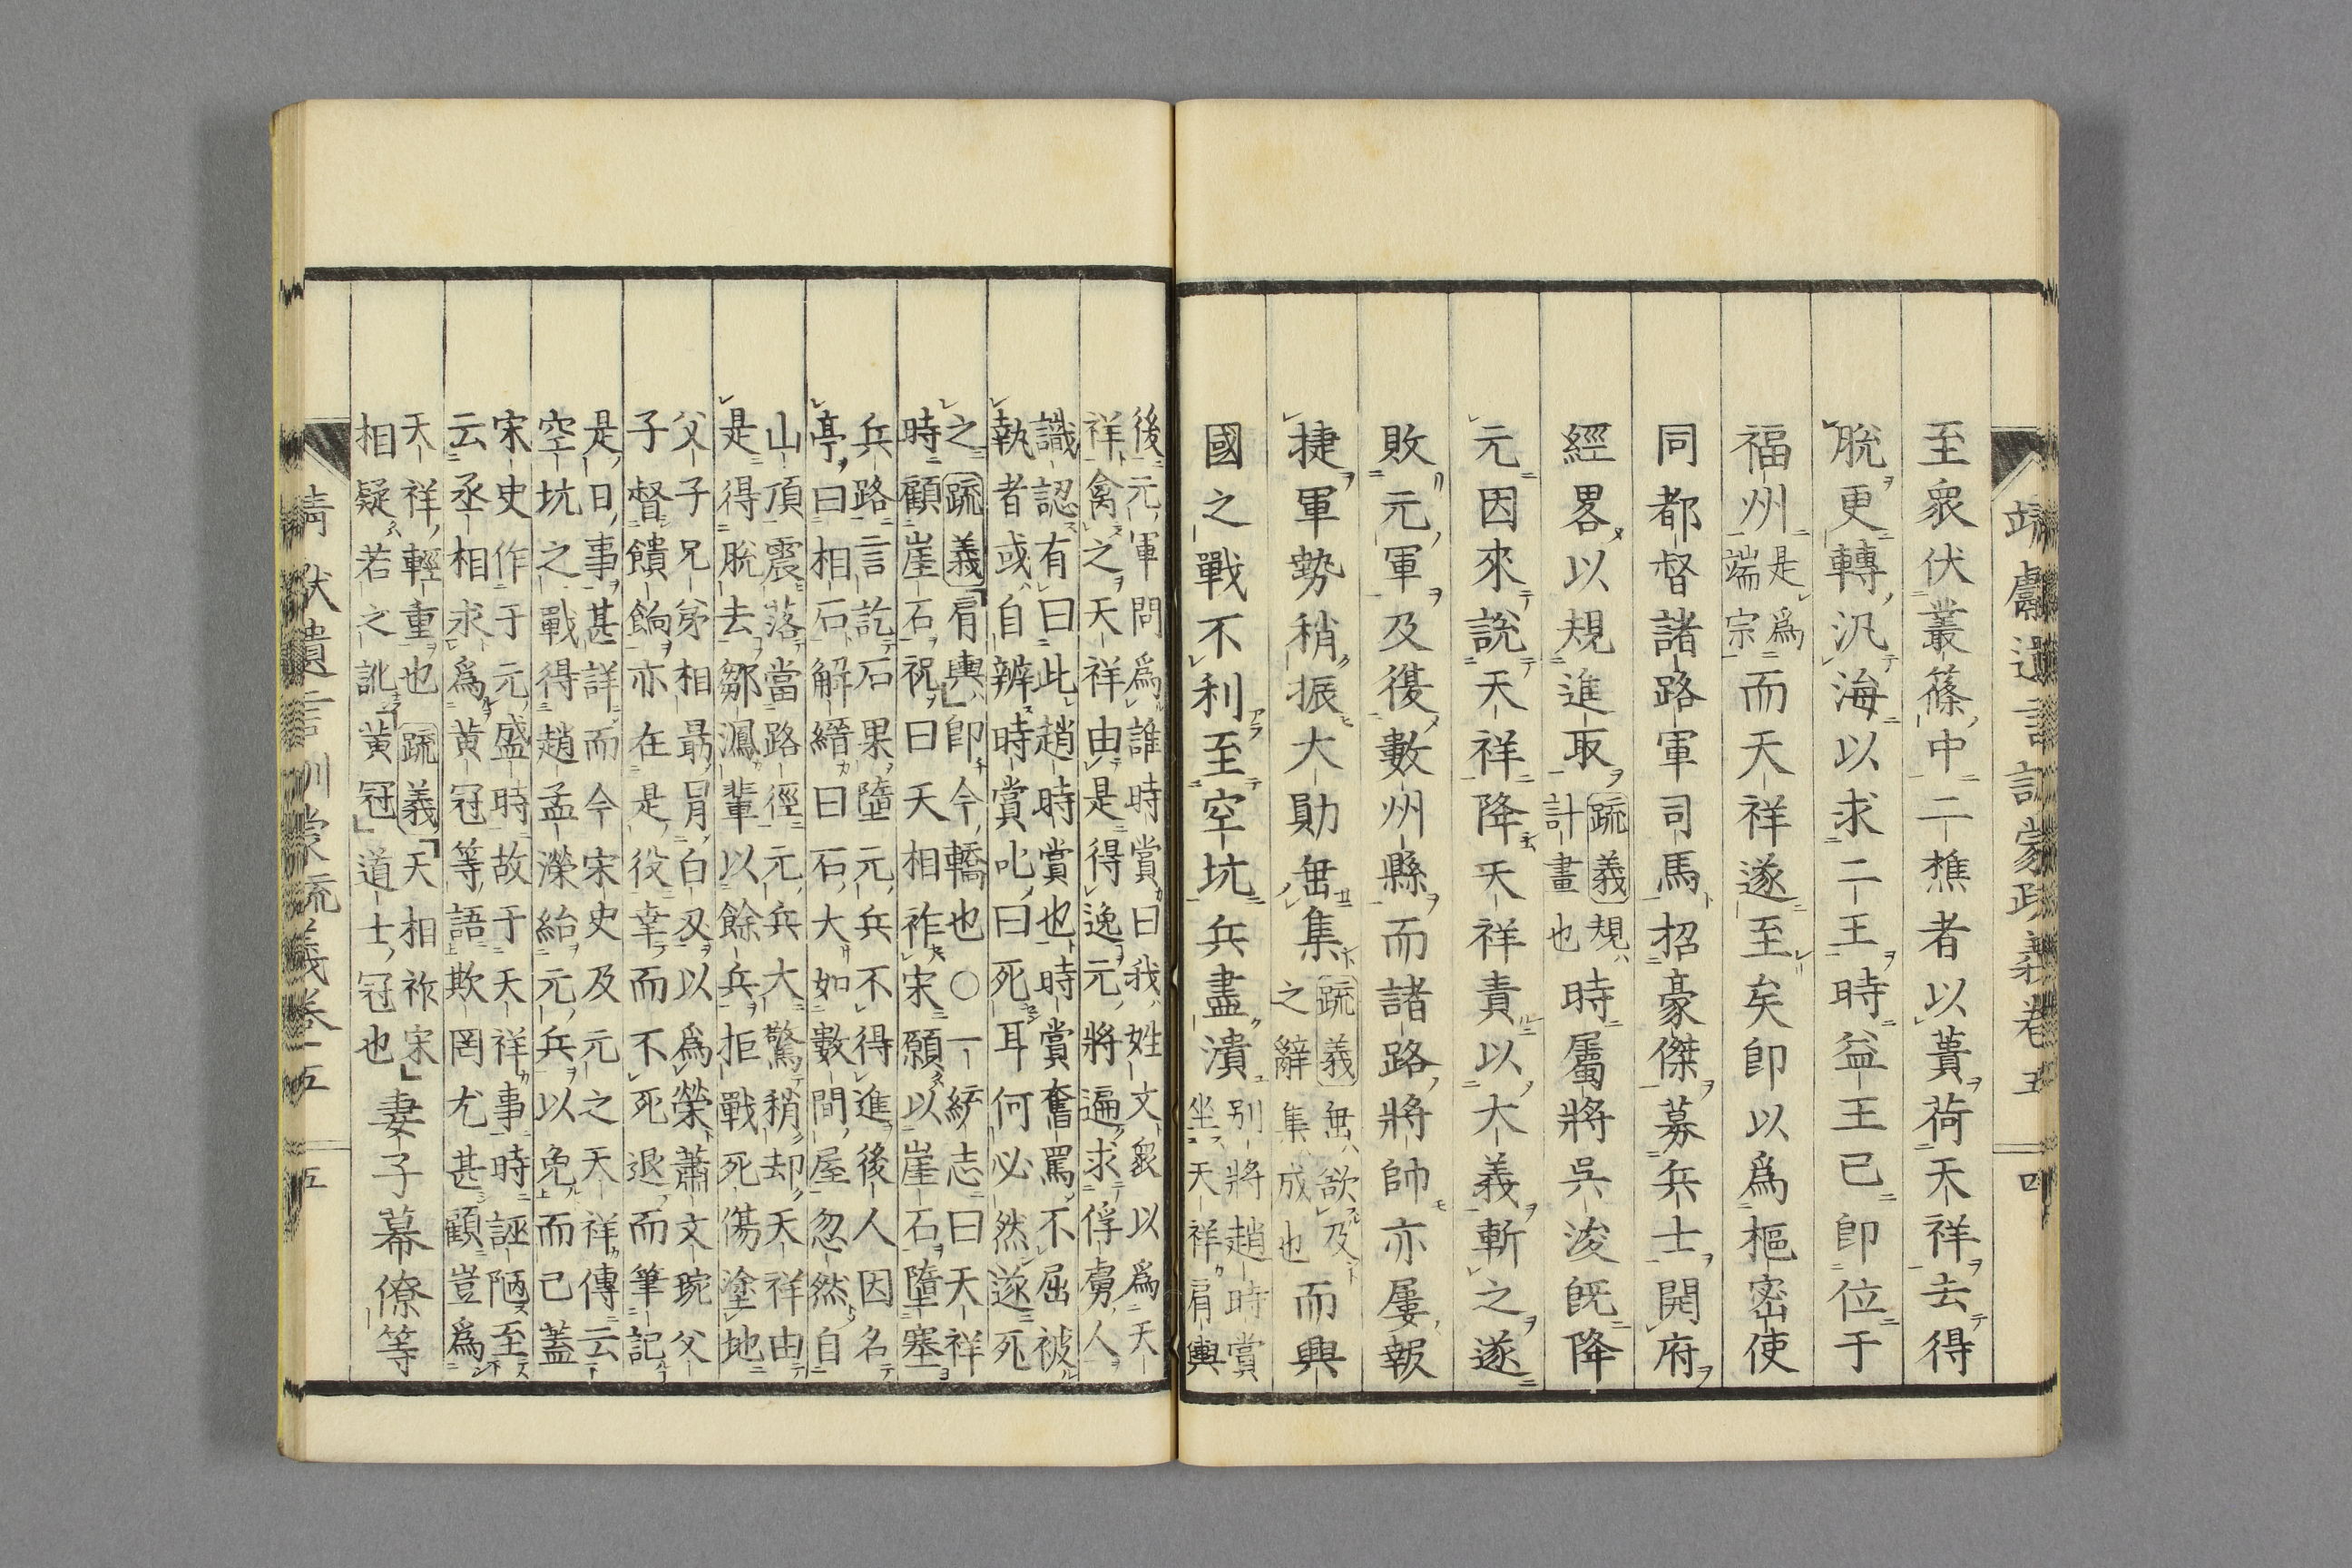 至衆伏叢篠中二樵者以蕢荷天祥去得
脫更轉汎海以求二王王時益王已即位于
福州是爲端宗而天祥遂至矣即以爲樞密使
同都督諸路軍司馬招豪傑募兵士開府
經畧以規進取疏義規ハ計畫也時屬將吳浚既降
元因來說天祥降天祥責以大義斬之遂
敗元軍及復數州縣而諸路將帥亦屢報
捷軍勢稍振大勛垂集疏義垂ハ欲及之辭集ハ成也而興
國之戰不利至空坑兵盡潰別將趙時賞坐天祥肩輿
後元軍問爲誰時賞曰我姓文衆以爲天
祥禽之天祥由是得逸元將遍求俘虜人
識認有曰此趙時賞也時賞奮罵不屈被
執者或自辨時賞叱曰死耳何必然遂死
之疏義肩輿即今轎也〇一統志曰天祥
時顧崖石祝曰天相祚宋願以崖石墮塞
兵路言訖石果墮元兵不得進後人因名
亭曰相石解縉曰石大如數間屋忽然自
山頂震落當路徑元兵大驚稍却天祥由
是得脫去鄒㵯輩以餘兵拒戰死傷塗地
父子兄弟相最冐白刄以爲榮蕭文琬父
子督饋餉亦在是役幸而不死退而筆記
是日事甚詳而今宋史及元之天祥傳云
空坑之戰得趙孟濚紿元兵以免而已蓋
宋史作于元盛時故于天祥事時誣陋至
云丞相求爲黃冠等語欺罔尤甚顧豈爲
天祥輕重也疏義天相祚宋
相疑若之訛黃冠道士冠也妻子幕僚等
靖獻遺言訓蒙疏義卷五
四
五